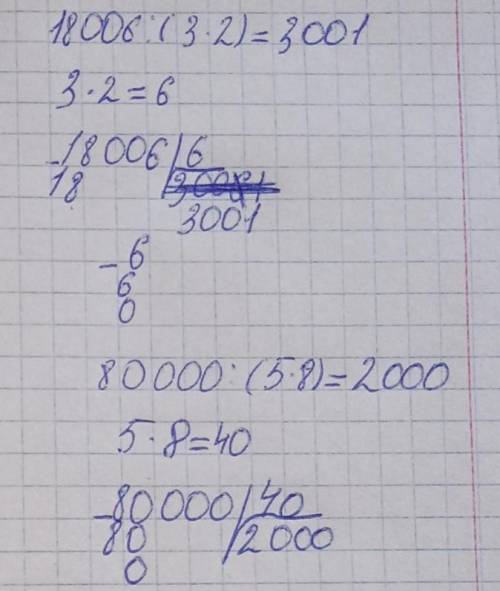 18006:(3·2)=3001
3·2=6
-18006|6
18
3001
-6
6
0
80000:(5·8)=2000
5·8=40
-80000|40
80 |2000
0